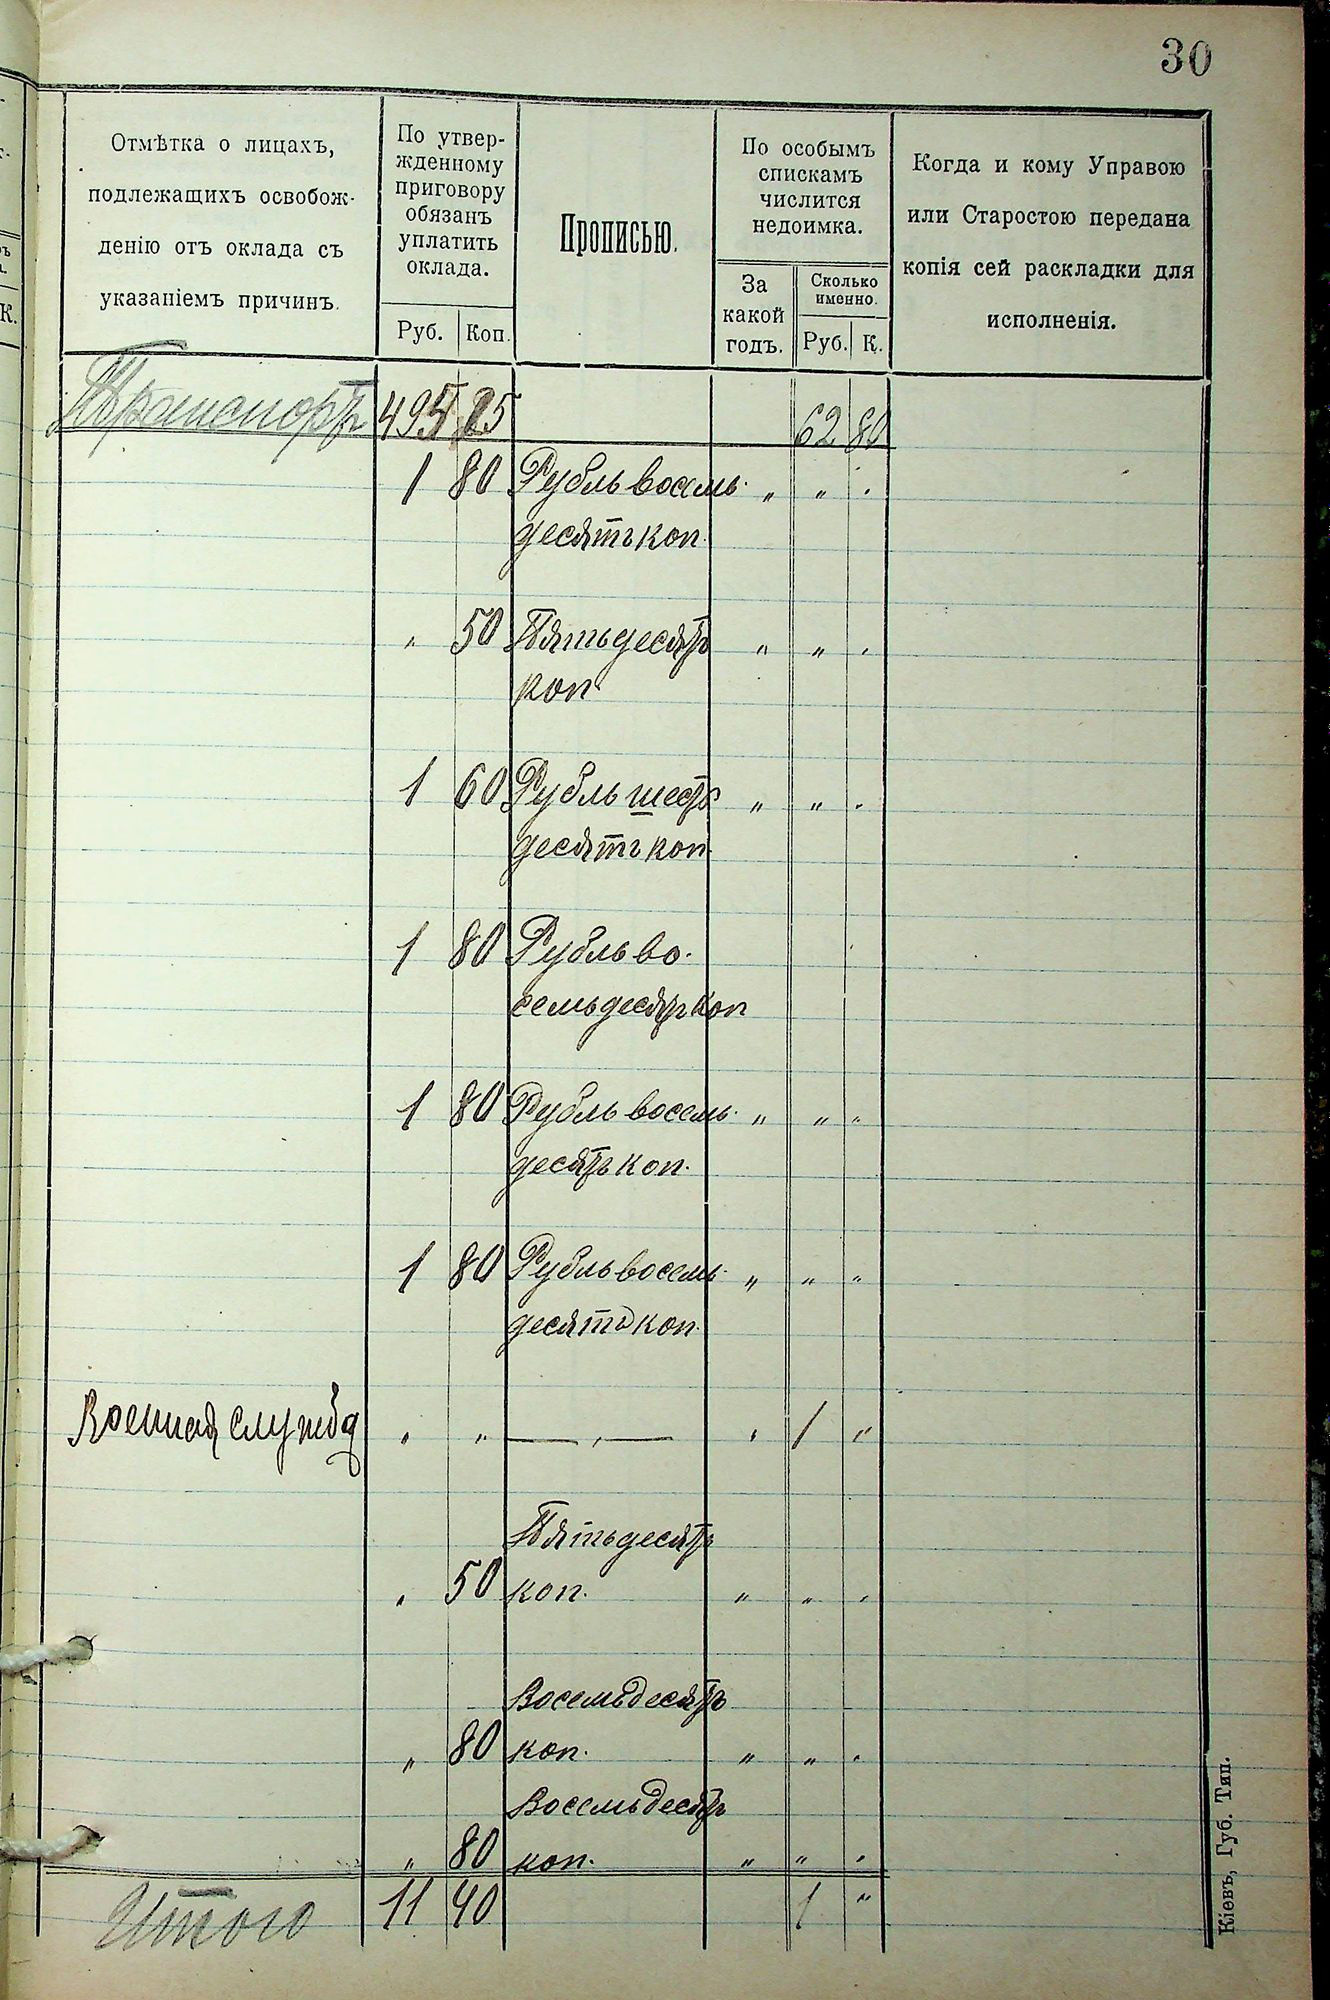 30
Отмѣтка о лицахъ,
подлежащихъ освобож-
денію отъ оклада съ
указаніемъ причинъ.
По утвер-
жденному
приговору
обязанъ
уплатить
оклада.
Руб. Коп.
Прописью.
По особымъ
спискамъ
числится
недоимка.
За
какой
годъ.
Сколько
именно.
Руб. К.
Когда и кому Управою
или Старостою передана
копія сей раскладки для
исполненія.
Транспортъ 495 25 62 80
1 80 Рубль восемь- " " "
десятъ коп.
" 50 Пятьдесятъ " " "
коп
1 60 Рубль шесть " " "
десятъ коп.
1 80 Рубль во-
семьдесятъ коп
1 80 Рубль восемь- " " "
десятъ коп.
1 80 Рубль восемь- " " "
десятъ коп.
Военная служба " " — " — " 1 "
Пятьдесятъ
" 50 коп. " " "
Восемьдесятъ
" 80 коп. " " "
Восемьдесятъ
" 80 коп. " " "
Итого 11 40 1 "
Кіевъ, Губ. Тип.
К.